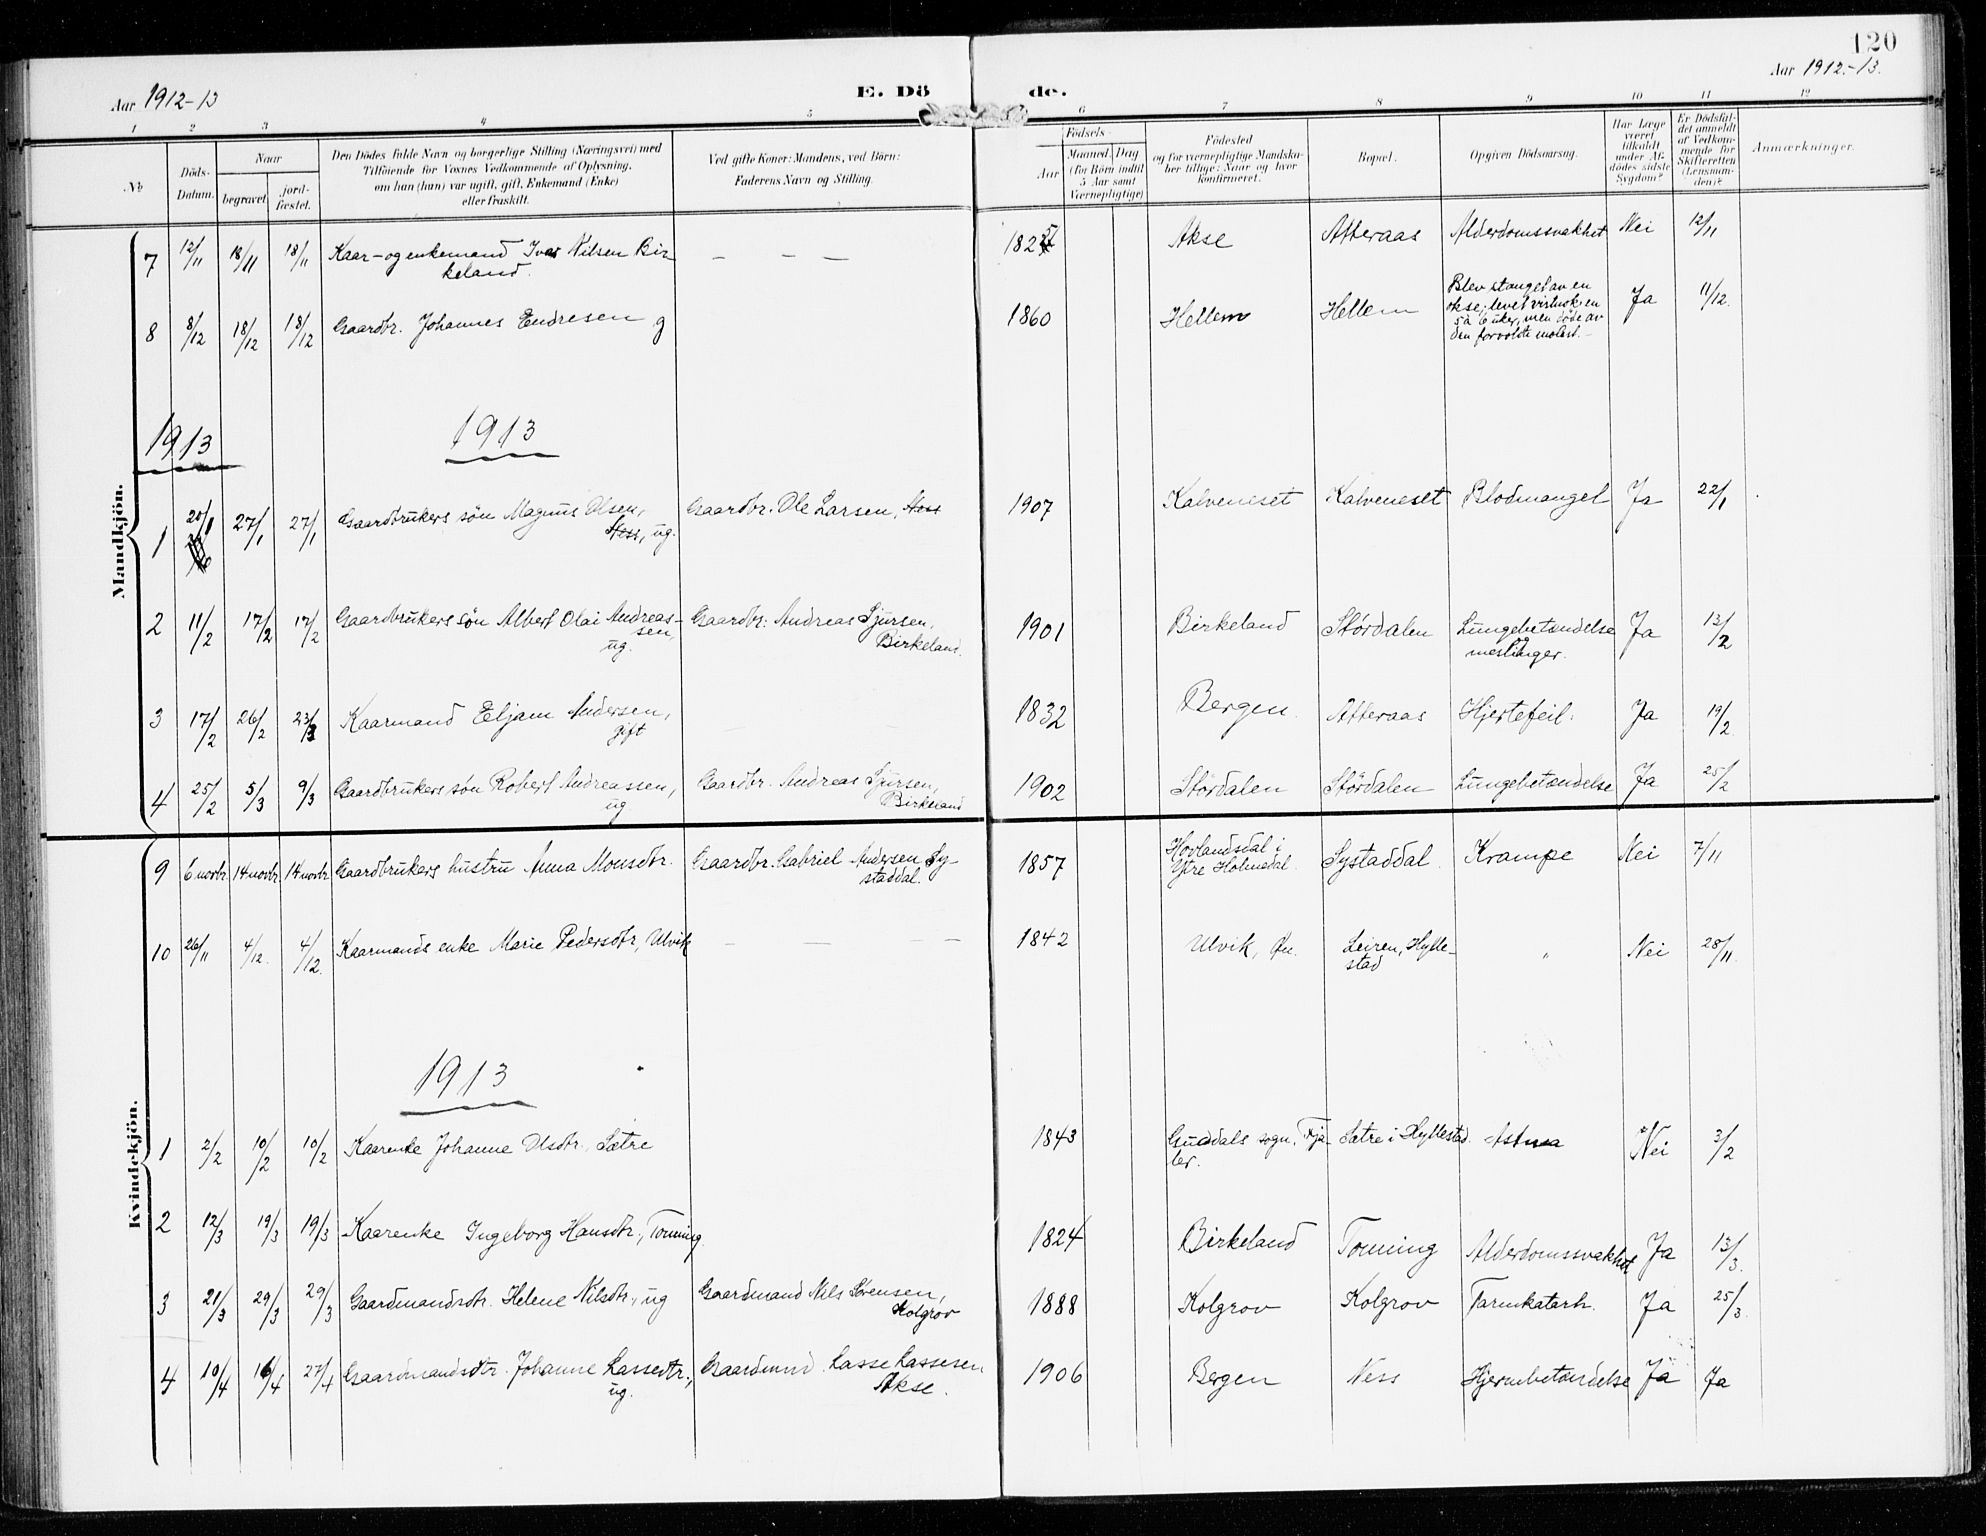 120
Aar 1912-13
E. Döde.
Aar 1912.-13.
1 2 3 4 5 6 7 8 9 10 11 12
№
Döds-Datum.
Naar
begravet.
jord-fæstet.
Den Dödes fulde Navn og borgerlige Stilling (Næringsvei) med
Tilföiende for Voxnes Vedkommende af Oplysning,
om han (hun) var ugift, gift, Enkemand (Enke)
eller fraskilt.
Ved gifte Koner: Mandens, ved Börn:
Faderens Navn og Stilling.
Födsels-
Aar
Maaned. Dag
(for Börn indtil
5 Aar samt
Værnepligtige)
Födested
og for værnepligtige Mandska-
ber tillige: Naar og hvor
konfirmeret.
Bopæl.
Opgiven Dödsaarsag.
Har Læge
været
tilkaldt
under Af-
dödes sidste
Sygdom?
Er Dödsfal-
det anmeldt
af Vedkom-
mende for
Skifteretten
(Lensman-
den)?
Anmærkninger.
Mandkjön.
7 12/11 18/11 18/11 Kaar- og enkemand Ivar Nilsen Bir-
keland. — — — Akse Atteraas Alderdomssvakhet Nei 12/11
8 8/12 18/12 18/12 Gaardbr. Johannes Endresen g 1860 Hellem Hellem Blev stanget av en
okse, levet virtnok en
5 à 6 uker, men døde av
den forvoldte molest. — Ja 11/12.
1913 1913
1 20/1 27/1 27/1 Gaardbrukers søn Magnus Olsen,
Ness, ug. Gaardbr. Ole Larsen, Ness 1907 Kalveneset Kalveneset Blodmangel Ja 22/1
2 11/2 17/2 17/2 Gaardbrukers søn Albert Olai Andreas-
sen,
ug. Gaardbr: Andreas Sjursen,
Birkeland. 1901 Birkeland Størdalen Lungebetændelse
og
meslinger. Ja 13/2
3 17/2 26/2 23/3 Kaarmand Eljam Andersen,
gift 1832 Bergen. Atteraas Hjertefeil. Ja 19/2.
4 25/2 5/3 9/3 Gaardbrukers søn Robert Andreassen,
ug Gaardbr. Andreas Sjursen,
Birkeland 1902 Størdalen Størdalen Lungebetændelse Ja 25/2
Kvindekjön.
9 6 novbr. 14 novbr. 14 novbr. Gaardbrukers hustru Anna Monsdtr. Gaardbr. Gabriel Andersen Sy-
staddal. 1857 Hovlandsdal i
Ytre Holmedal. Systaddal. Krampe Nei 7/11
10 26/11 4/12. 4/12. Kaarmands enke Marie Pedersdtr, Ulvik — — — 1842 Ulvik, Øn. Leiren, Hylle-
stad " Nei 28/11.
1913
1 2/2 10/2 10/2 Kaarenke Johanne Olsdtr. Sætre 1843 Guddals sogn, Fja-
ler. Sætre i Hyllestad. Astma Nei 3/2
2 12/3 19/3 19/3 Kaarenke Ingeborg Hansdtr., Tonning. 1824 Birkeland Tonning Alderdomssvakhet Ja 13/3.
3 21/3 29/3 29/3 Gaardmandsdtr. Helene Nilsdtr., ug Gaardmand Nils Sørensen,
Kolgrov 1888 Kolgrov Kolgrov Tarmkatarh. Ja 25/3.
4 10/4 16/4 27/4 Gaardmandsdtr. Johanne Lassedtr.,
ug. Gaardmand Lasse Lassesen
Akse. 1906 Bergen Ness Hjernebetændelse Ja Ja